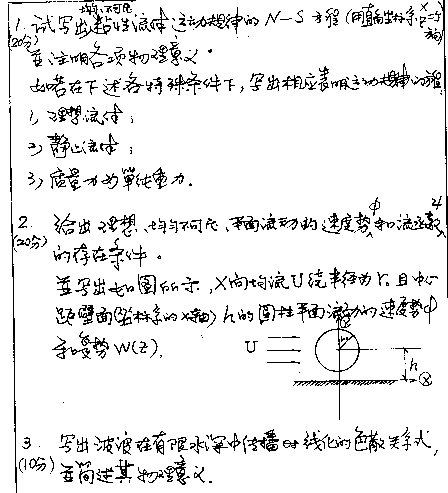 1. 试写出均质不可压粘性流体运动规律的N-S方程(用直角坐标系x一方向)
(20分) 并注明各项物理意义。
如若在下述各特殊条件下,写出相应表明运动规律的方程
1) 理想流体;
2) 静止流体;
3) 质量力为单纯重力.
2. 给出理想、均匀不可压、平面流动的速度势φ和流函数ψ
(20分) 的存在条件。
并写出如图所示,X向均流U绕半径为r。且中心
距壁面(坐标系的x轴)h的圆柱平面流动的速度势φ
和复势W(z).
U
h
x
3. 写出波浪在有限水深中传播时线化的色散关系式,
(10分) 并简述其物理意义.